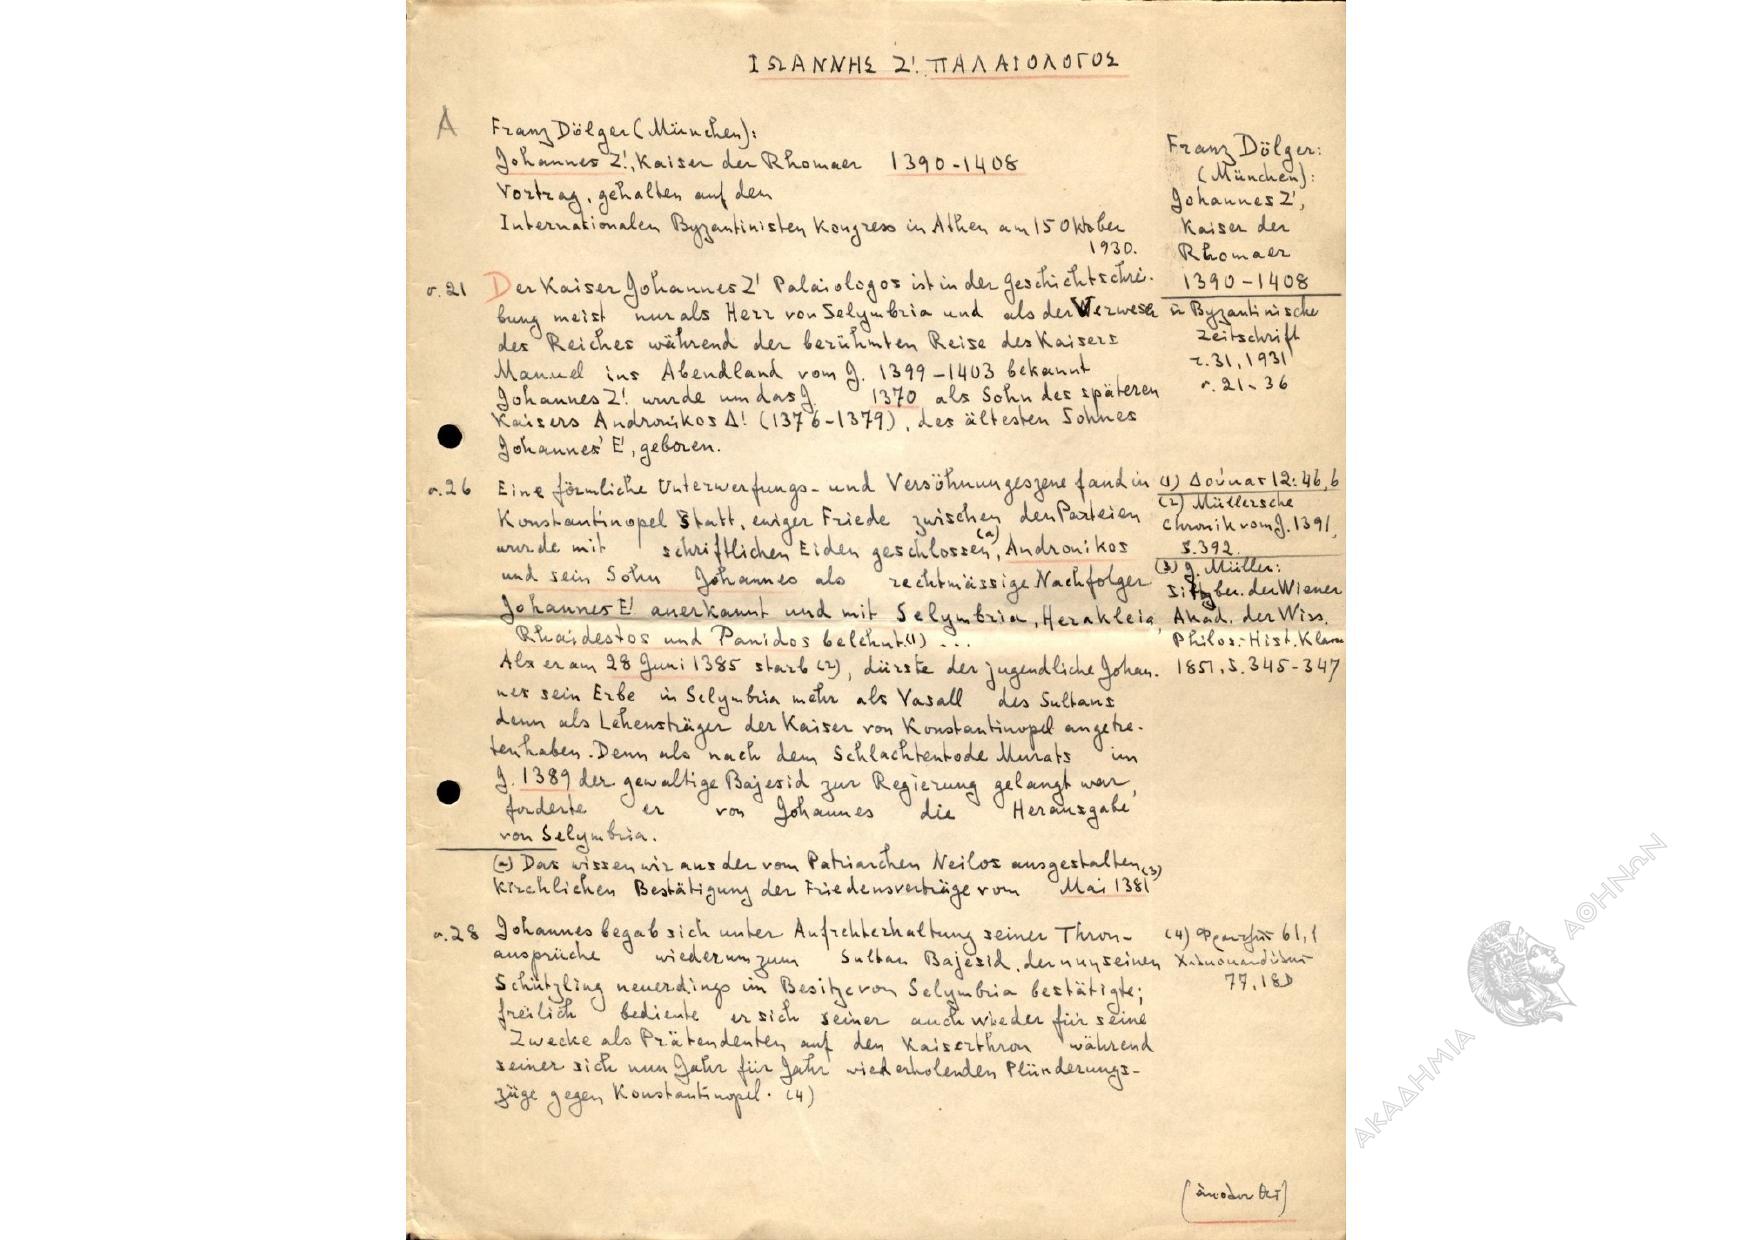 ΙΩΑΝΝΗΣ Ζ'. ΠΑΛΑΙΟΛΟΓΟΣ
A
Franz Dölger (München):
Johannes Z'., Kaiser der Rhomaer 1390-1408
Vortrag, gehalten auf dem
Internationalen Byzantinisten Kongress in Athen am 15 Oktober
1930.
Franz Dölger:
(München):
Johannes Z',
Kaiser der
Rhomaer
1390-1408
in Byzantinische
Zeitschrift
τ. 31, 1931
σ. 21-36
σ. 21 Der Kaiser Johannes Z' Palaiologos ist in der Geschichtschrei-
bung meist nur als Herr von Selymbria und als der Verweser
des Reiches während der berühmten Reise des Kaisers
Manuel ins Abendland vom J. 1399-1403 bekannt
Johannes Z'. wurde um das J. 1370 als Sohn des späteren
Kaisers Andronikos Δ'. (1376-1379), des ältesten Sohnes
Johannes' E', geboren.
σ. 26 Eine förmliche Unterwerfungs- und Versöhnungszene fand in
Konstantinopel statt, ewiger Friede zwischen den Parteien
wurde mit schriftlichen Eiden geschlossen (a), Andronikos
und sein Sohn Johannes als rechtmässige Nachfolger
Johannes E' anerkannt und mit Selymbria, Herakleia,
Rhaidestos und Panidos belehnt. (1) ...
Als er am 28 Juni 1385 starb (2), dürfte der jugendliche Johan-
nes sein Erbe in Selymbria mehr als Vasall des Sultans
denn als Lehensträger der Kaiser von Konstantinopel angetre-
ten haben. Denn als nach dem Schlachtentode Murats im
J. 1389 der gewaltige Bajesid zur Regierung gelangt war,
forderte er von Johannes die Herausgabe
von Selymbria.
(1) Δούκας 12: 46,6
(2) Müllersche
Chronik vom J. 1391,
S. 392.
(3) J. Müller:
Sitzber. der Wiener
Akad. der Wiss.
Philos.-Hist. Klasse
1851, S. 345-347
(a) Das wissen wir aus der vom Patriarchen Neilos ausgestalten
Kirchlichen Bestätigung der Friedensverträge vom Mai 1381 (3)
σ. 28 Johannes begab sich unter Aufrechterhaltung seiner Thron-
ansprüche wiederum zum Sultan Bajesid, der nun seinen
Schützling neuerdings im Besitze von Selymbria bestätigte;
freilich bediente er sich seiner auch wieder für seine
Zwecke als Prätendenten auf den Kaiserthron während
seiner sich nun Jahr für Jahr wiederholenden Plünderungs-
züge gegen Konstantinopel. (4)
(4) Φραντζῆς 61,1
77,18
ΑΚΑΔΗΜΙΑ ΑΘΗΝΩΝ